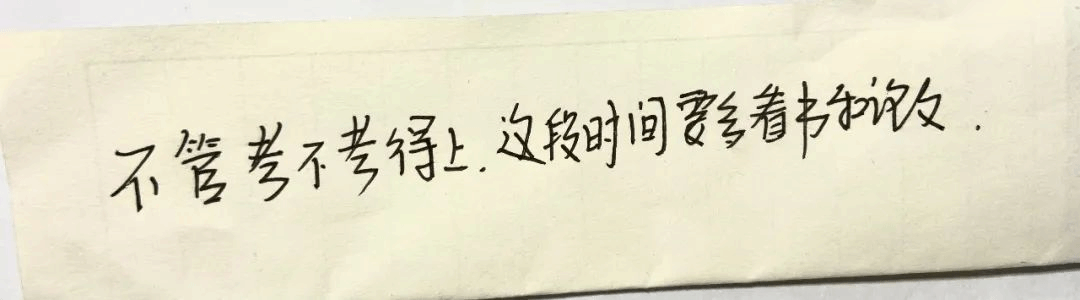 不管考不考得上.这段时间要多看书和论文.